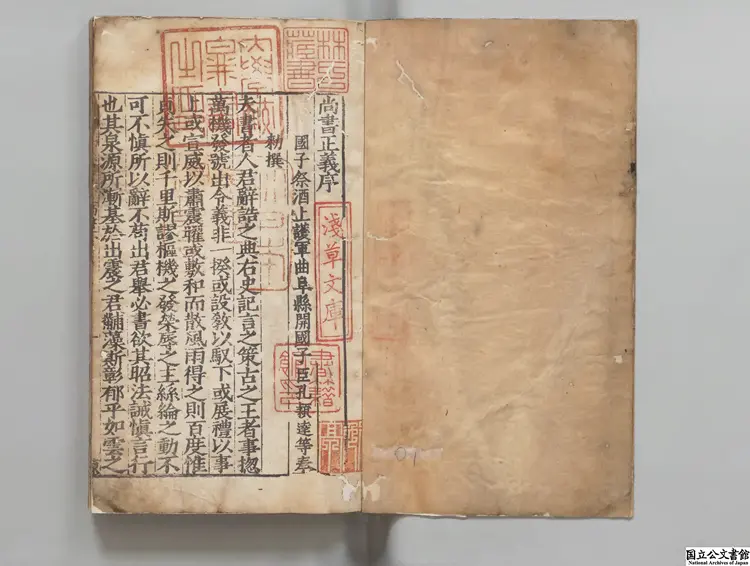 尚書正義序
國子祭酒上護軍曲阜縣開國子臣孔穎達等奉
勑撰
夫書者人君辭誥之典右史記言之策古之王者事揔
萬機發號出令義非一揆或設敎以馭下或展禮以事
上或宣威以肅震曜或敷和而散風雨得之則百度惟
貞失之則千里斯謬樞機之發榮辱之主絲綸之動不
可不愼所以辭不苟出君舉必書欲其昭法誡愼言行
也其泉源所漸基於出震之君黼藻斯彰郁乎如雲之
林氏藏書
淺草文庫
書籍館印
国立公文書館
National Archives of Japan